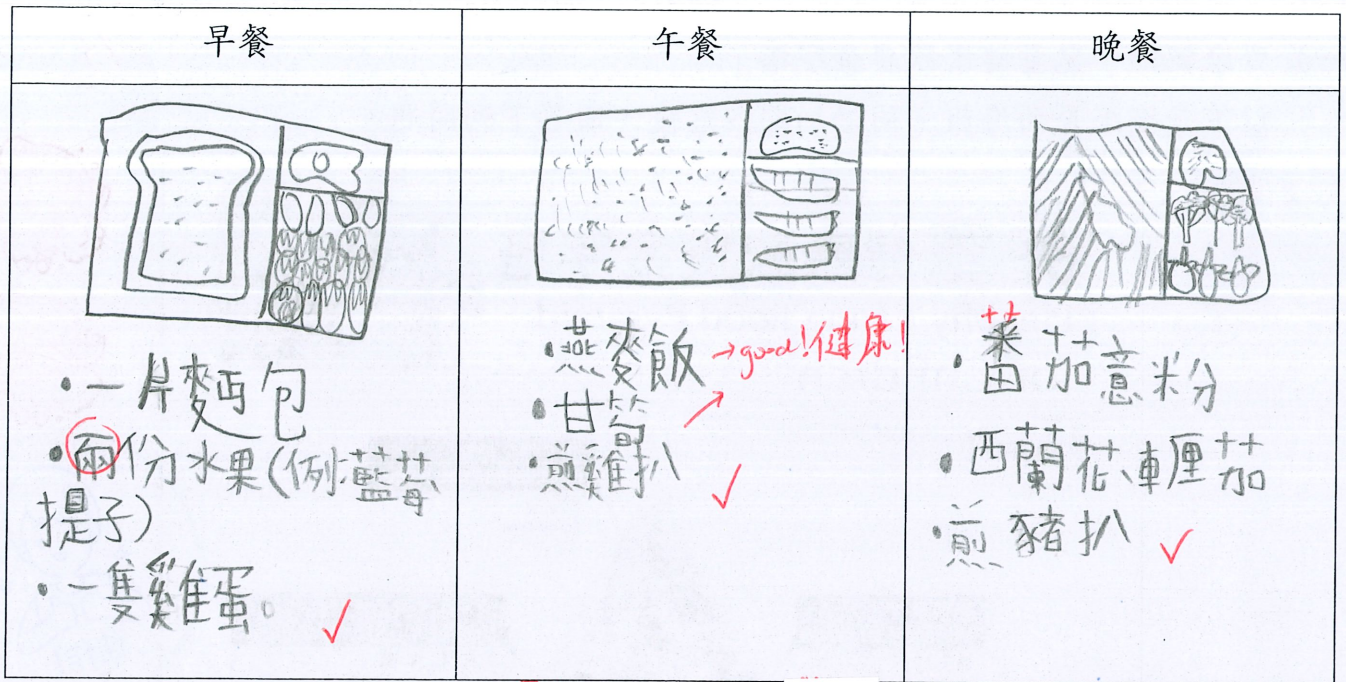 早餐
·一片麵包
·兩份水果(例:藍莓
提子)
·一隻雞蛋。
午餐
·燕麥飯 →good!健康!
·甘筍
·煎雞扒
晚餐
·蕃茄意粉
·西蘭花、車厘茄
·煎豬扒